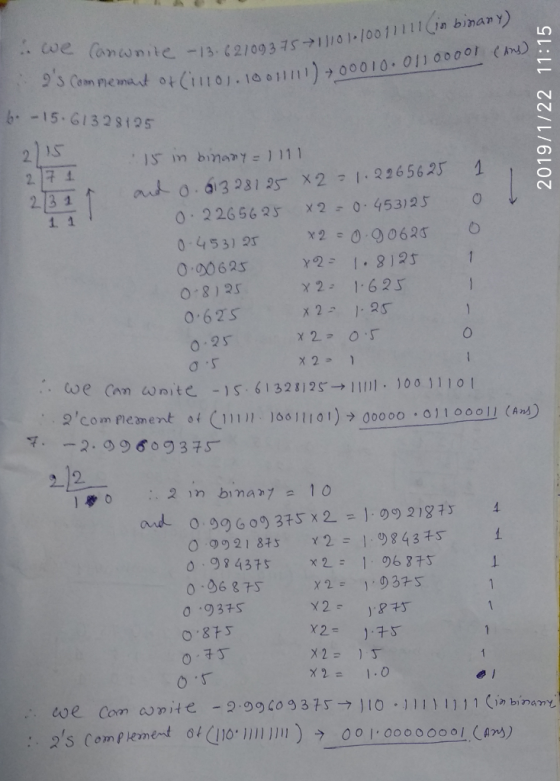 ∴ we can write -13.62109375 → 11101.10011111 (in binary)
∴ 2's complement of (11101.10011111) → 00010.01100001 (Ans)
6. -15.61328125
2 | 15
2 | 7 1
2 | 3 1
1 1
∴ 15 in binary = 1111
and 0.61328125 x2 = 1.2265625 1
0.2265625 x2 = 0.453125 0
0.453125 x2 = 0.90625 0
0.90625 x2 = 1.8125 1
0.8125 x2 = 1.625 1
0.625 x2 = 1.25 1
0.25 x2 = 0.5 0
0.5 x2 = 1 1
∴ we can write -15.61328125 → 11111.10011101
∴ 2'complement of (11111.10011101) → 00000.01100011 (Ans)
7. -2.99609375
2 | 2
1 0
∴ 2 in binary = 10
and 0.99609375 x2 = 1.9921875 1
0.9921875 x2 = 1.984375 1
0.984375 x2 = 1.96875 1
0.96875 x2 = 1.9375 1
0.9375 x2 = 1.875 1
0.875 x2 = 1.75 1
0.75 x2 = 1.5 1
0.5 x2 = 1.0 1
∴ we can write -2.99609375 → 110.11111111 (in binary
∴ 2's complement of (110.11111111) → 001.00000001 (Ans)
2019/1/22 11:15